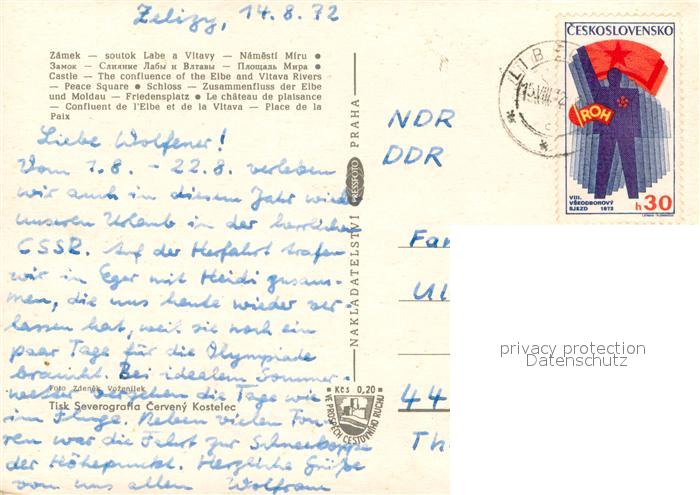 Zelizy, 14.8.72
Zámek — soutok Labe a Vltavy — Náměstí Míru ●
Замок — Слияние Лабы и Влтавы — Площаль Мира ●
Castle — The confluence of the Elbe and Vltava Rivers
— Peace Square ● Schloss — Zusammenfluss der Elbe
und Moldau — Friedensplatz ● Le château de plaisance
— Confluent de l'Elbe et de la Vltava — Place de la
Paix
Liebe Wolfener!
Vom 1.8. – 22.8. verleben
wir auch in diesem Jahr wieder
unseren Urlaub in der herrlichen
ČSSR. Auf der Herfahrt trafen
wir in Eger mit Heidi zusam-
men, die uns heute wieder ver-
lassen hat, weil sie noch ein
paar Tage für die Olympiade
braucht. Bei idealem Sommer-
wetter vergehen die Tage wie
im Fluge. Neben vielen Tou-
ren war die Fahrt zur Schneekoppe
der Höhepunkt. Herzliche Grüße
von uns allen Wolfram
Foto Zdeněk Voženílek
Tisk Severografia Červený Kostelec
NAKLADATELSTVÍ PRESSFOTO PRAHA
Kčs 0,20
VE PROSPĚCH CESTOVNÍHO RUCHU
ČESKOSLOVENSKO
ROH
VIII.
VŠEODBOROVÝ
SJEZD 1972
h 30
LIBĚ
NDR
DDR
Fam
Ul
44
Th
privacy protection
Datenschutz